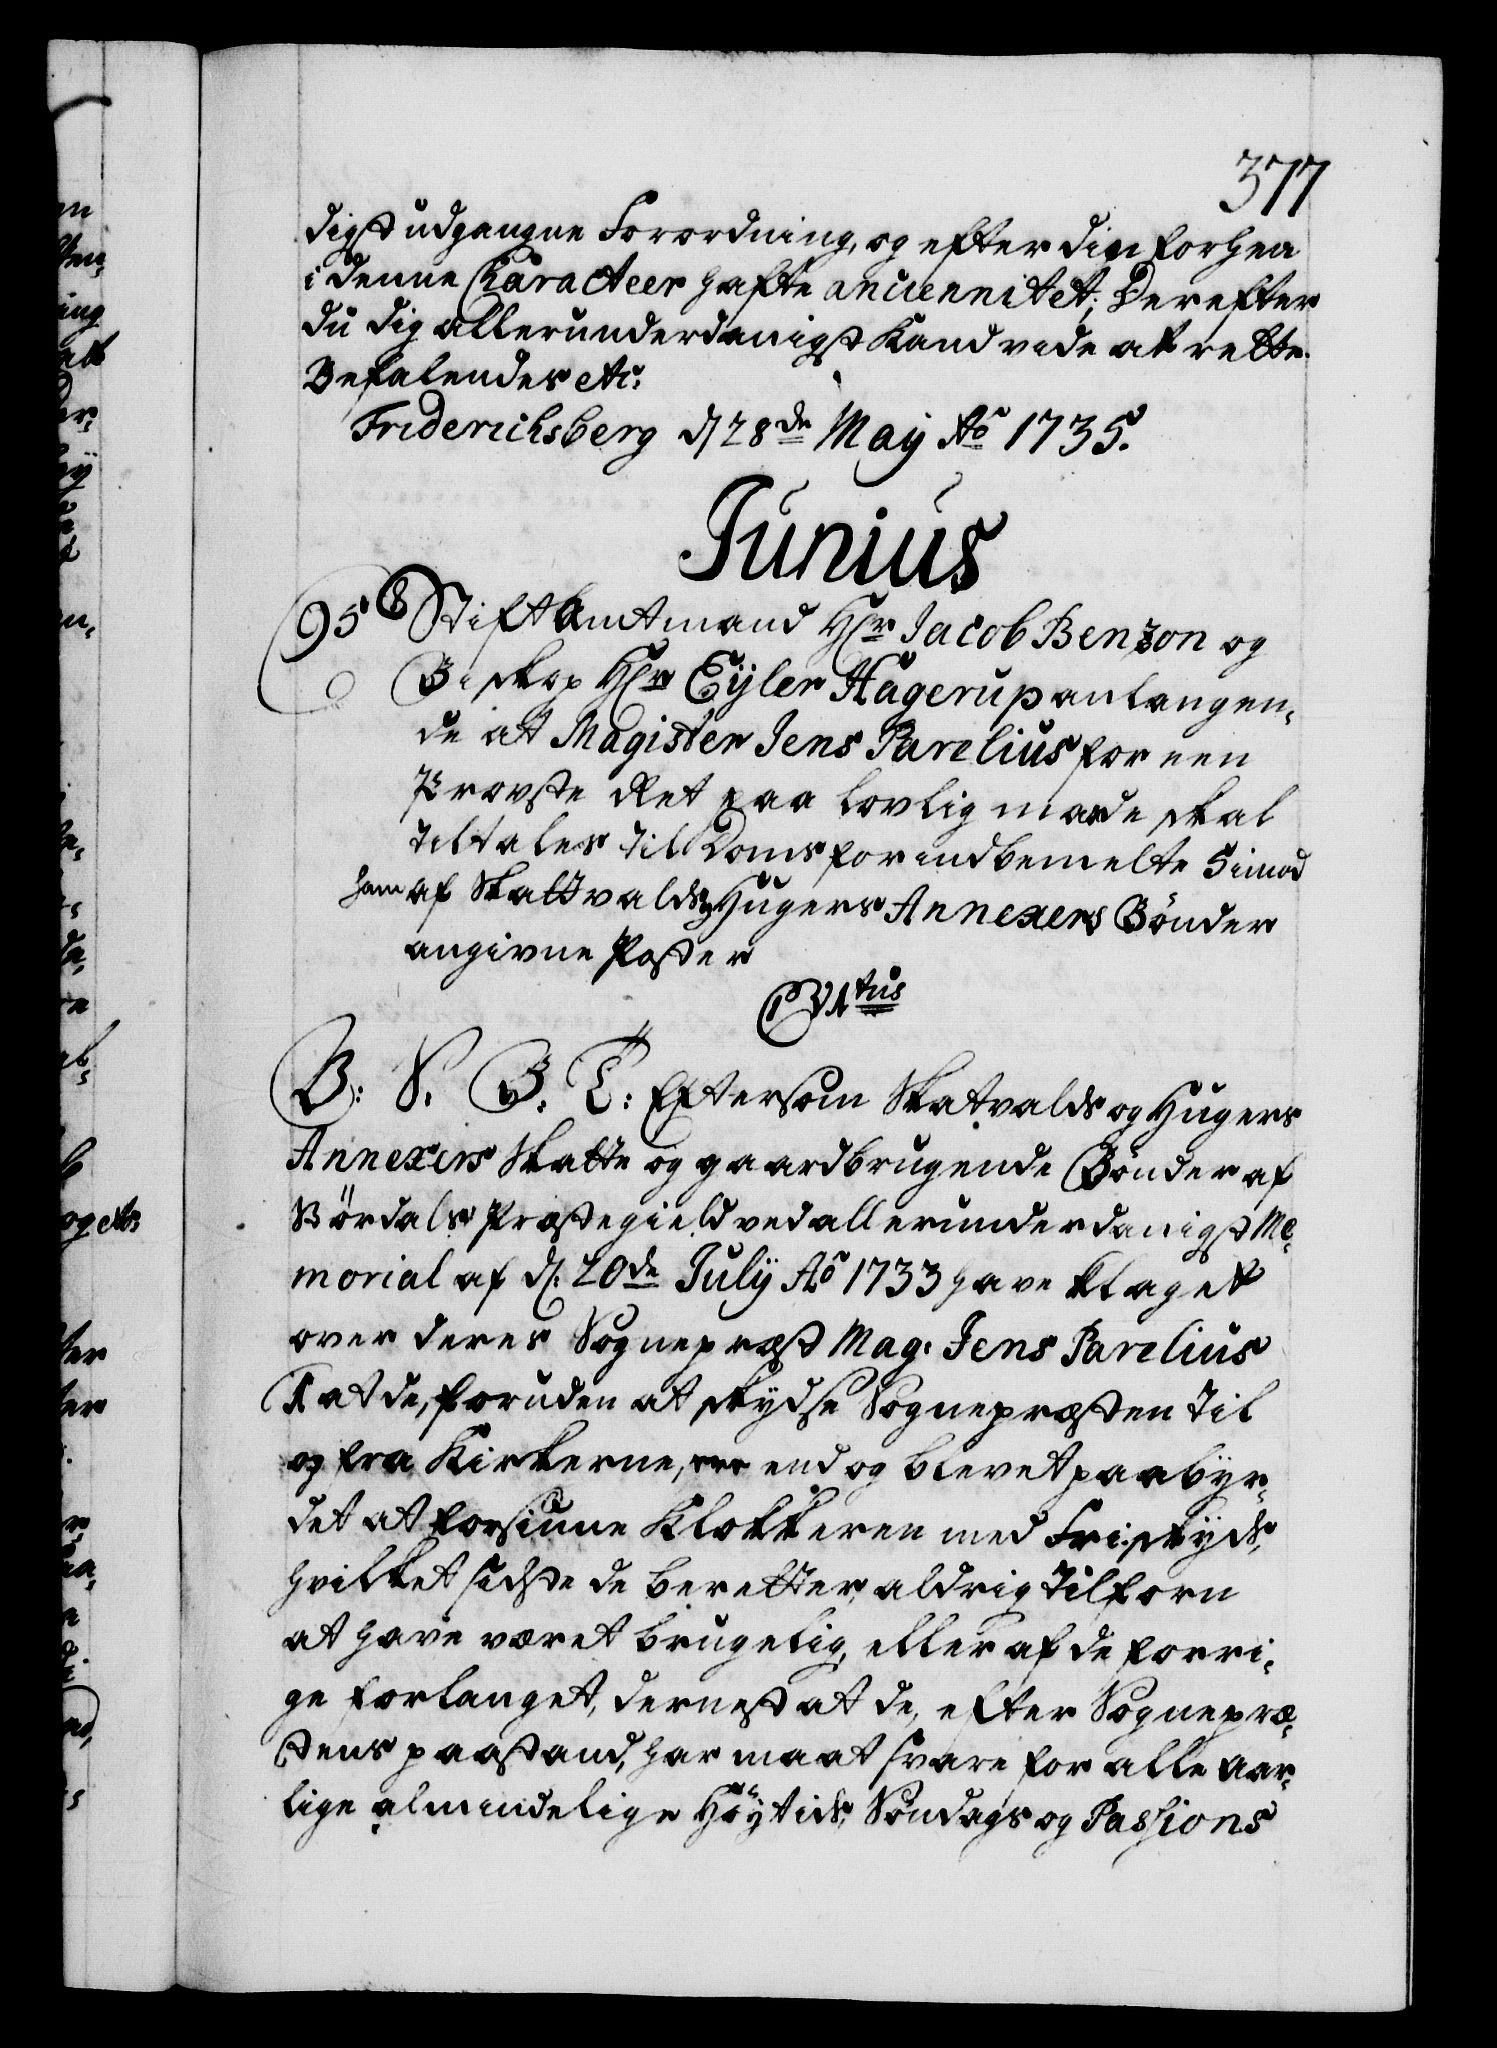 377
digst udgangne Forordning, og efter din forhen
i denne Caracteer hafte anciennitet; Derefter
du dig allerunderdanigst kand vide at rette.
Befalendes etc:
Friderichsberg d/ 28de Maij Ao 1735.
Junius
95 Stiftbamtmand Hr Jacob Benzon og
Biskop Hr Eÿler Hagerup anlangen-
de at Magister Jens Parelius for een
Provste Ret paa lovlig maade skal
tiltales til Doms for indbemelte imod
ham af Skattvalds og Hugers Annexers Bönder
angivne Poster
C. VI tus
B: S. B. T: Eftersom Skatvalds og Hugers
Annexers Skatte og gaardbrugende Bönder af
Vördals Præstegield ved allerunderdanigst Me-
morial af d/ 20de Julÿ Ao 1733 have klaget
over deres Sognepræst Mag. Jens Parelius
at de, foruden at skÿdse Sognepræsten til
og fra Kirkerne, end og blevet paabÿr-
det at forsiune Klokkeren med Friskÿds,
hvilket sidste de beretter, aldrig tilforn
at have været brugelig, eller af de forri-
ge forlanget, dernest at de, efter Sognepræ-
stens paastand, har maat svare for alle aar-
lige almindelige Höÿtids, Söndags og Passions